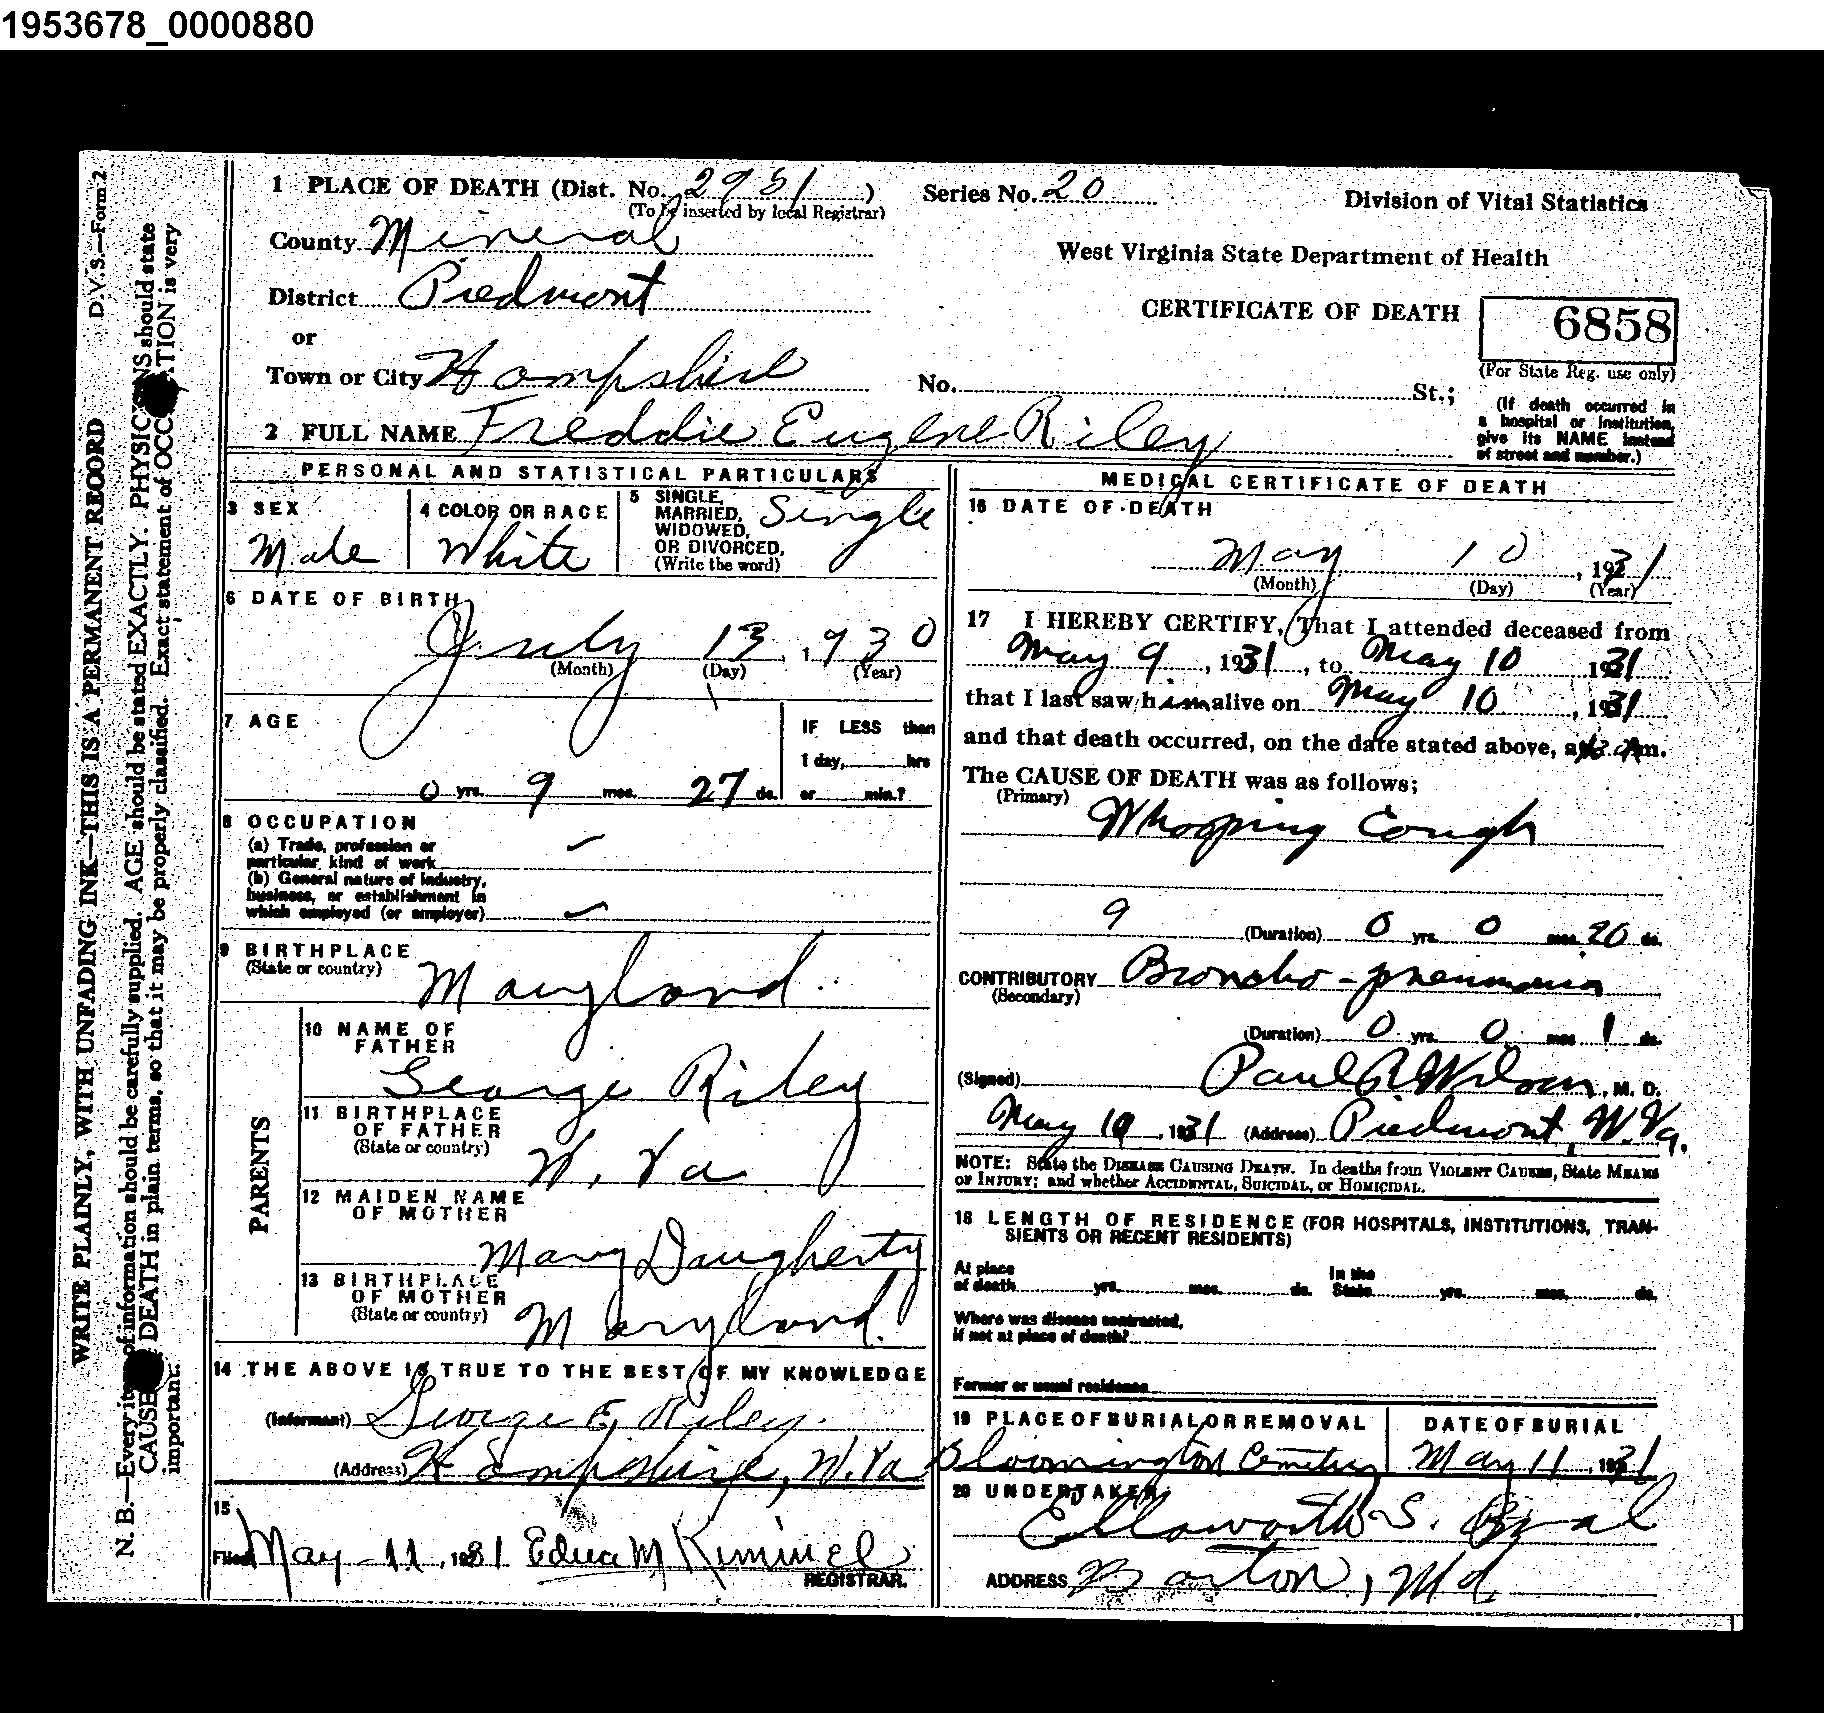 1953678_0000880
D.V.S.—Form 2
WRITE PLAINLY, WITH UNFADING INK—THIS IS A PERMANENT RECORD
N. B.—Every item of information should be carefully supplied. AGE should be stated EXACTLY. PHYSICIANS should state
CAUSE DEATH in plain terms, so that it may be properly classified. Exact statement of OCCUPATION is very
important.
1 PLACE OF DEATH (Dist. No. 2951)
(To be inserted by local Registrar)
Series No. 20
Division of Vital Statistics
County Mineral
West Virginia State Department of Health
District Piedmont
CERTIFICATE OF DEATH
6858
(For State Reg. use only)
or
Town or City Hampshire
No. St.;
(If death occurred in
a hospital or institution,
give its NAME instead
of street and number.)
2 FULL NAME Freddie Eugene Riley
PERSONAL AND STATISTICAL PARTICULARS
3 SEX
Male
4 COLOR OR RACE
White
5 SINGLE,
MARRIED,
WIDOWED,
OR DIVORCED,
(Write the word)
Single
6 DATE OF BIRTH
July 13, 1930
(Month) (Day) (Year)
7 AGE
0 yrs. 9 mos. 27 ds.
IF LESS than
1 day, hrs
or min.?
8 OCCUPATION
(a) Trade, profession or
particular kind of work —
(b) General nature of industry,
business, or establishment in
which employed (or employer) —
9 BIRTHPLACE
(State or country)
Maryland
PARENTS
10 NAME OF
FATHER
George Riley
11 BIRTHPLACE
OF FATHER
(State or country)
W. Va
12 MAIDEN NAME
OF MOTHER
Mary Daugherty
13 BIRTHPLACE
OF MOTHER
(State or country)
Maryland.
14 THE ABOVE IS TRUE TO THE BEST OF MY KNOWLEDGE
(Informant) George E. Riley.
(Address) Hampshire, W. Va
15
Filed May 11, 1931 Edna M Kimmel
REGISTRAR.
MEDICAL CERTIFICATE OF DEATH
16 DATE OF DEATH
May 10, 1931
(Month) (Day) (Year)
17 I HEREBY CERTIFY, That I attended deceased from
May 9, 1931, to May 10 1931
that I last saw him alive on May 10, 1931
and that death occurred, on the date stated above, at m.
The CAUSE OF DEATH was as follows;
(Primary)
Whooping Cough
9 (Duration) 0 yrs. 0 mos. 20 ds.
CONTRIBUTORY Broncho-pneumonia
(Secondary)
(Duration) 0 yrs. 0 mos 1 ds.
(Signed) Paul R Wilson, M. D.
May 10, 1931 (Address) Piedmont, W. Va.
NOTE: State the DISEASE CAUSING DEATH. In deaths from VIOLENT CAUSES, State MEANS
OF INJURY; and whether ACCIDENTAL, SUICIDAL, or HOMICIDAL.
18 LENGTH OF RESIDENCE (FOR HOSPITALS, INSTITUTIONS, TRAN-
SIENTS OR RECENT RESIDENTS)
At place
of death yrs. mos. ds.
In the
State yrs. mos. ds.
Where was disease contracted,
if not at place of death?
Former or usual residence
19 PLACE OF BURIAL OR REMOVAL
Bloomington Cemetery
DATE OF BURIAL
May 11, 1931
20 UNDERTAKER
Ellsworth S. Boal
ADDRESS Barton, Md.